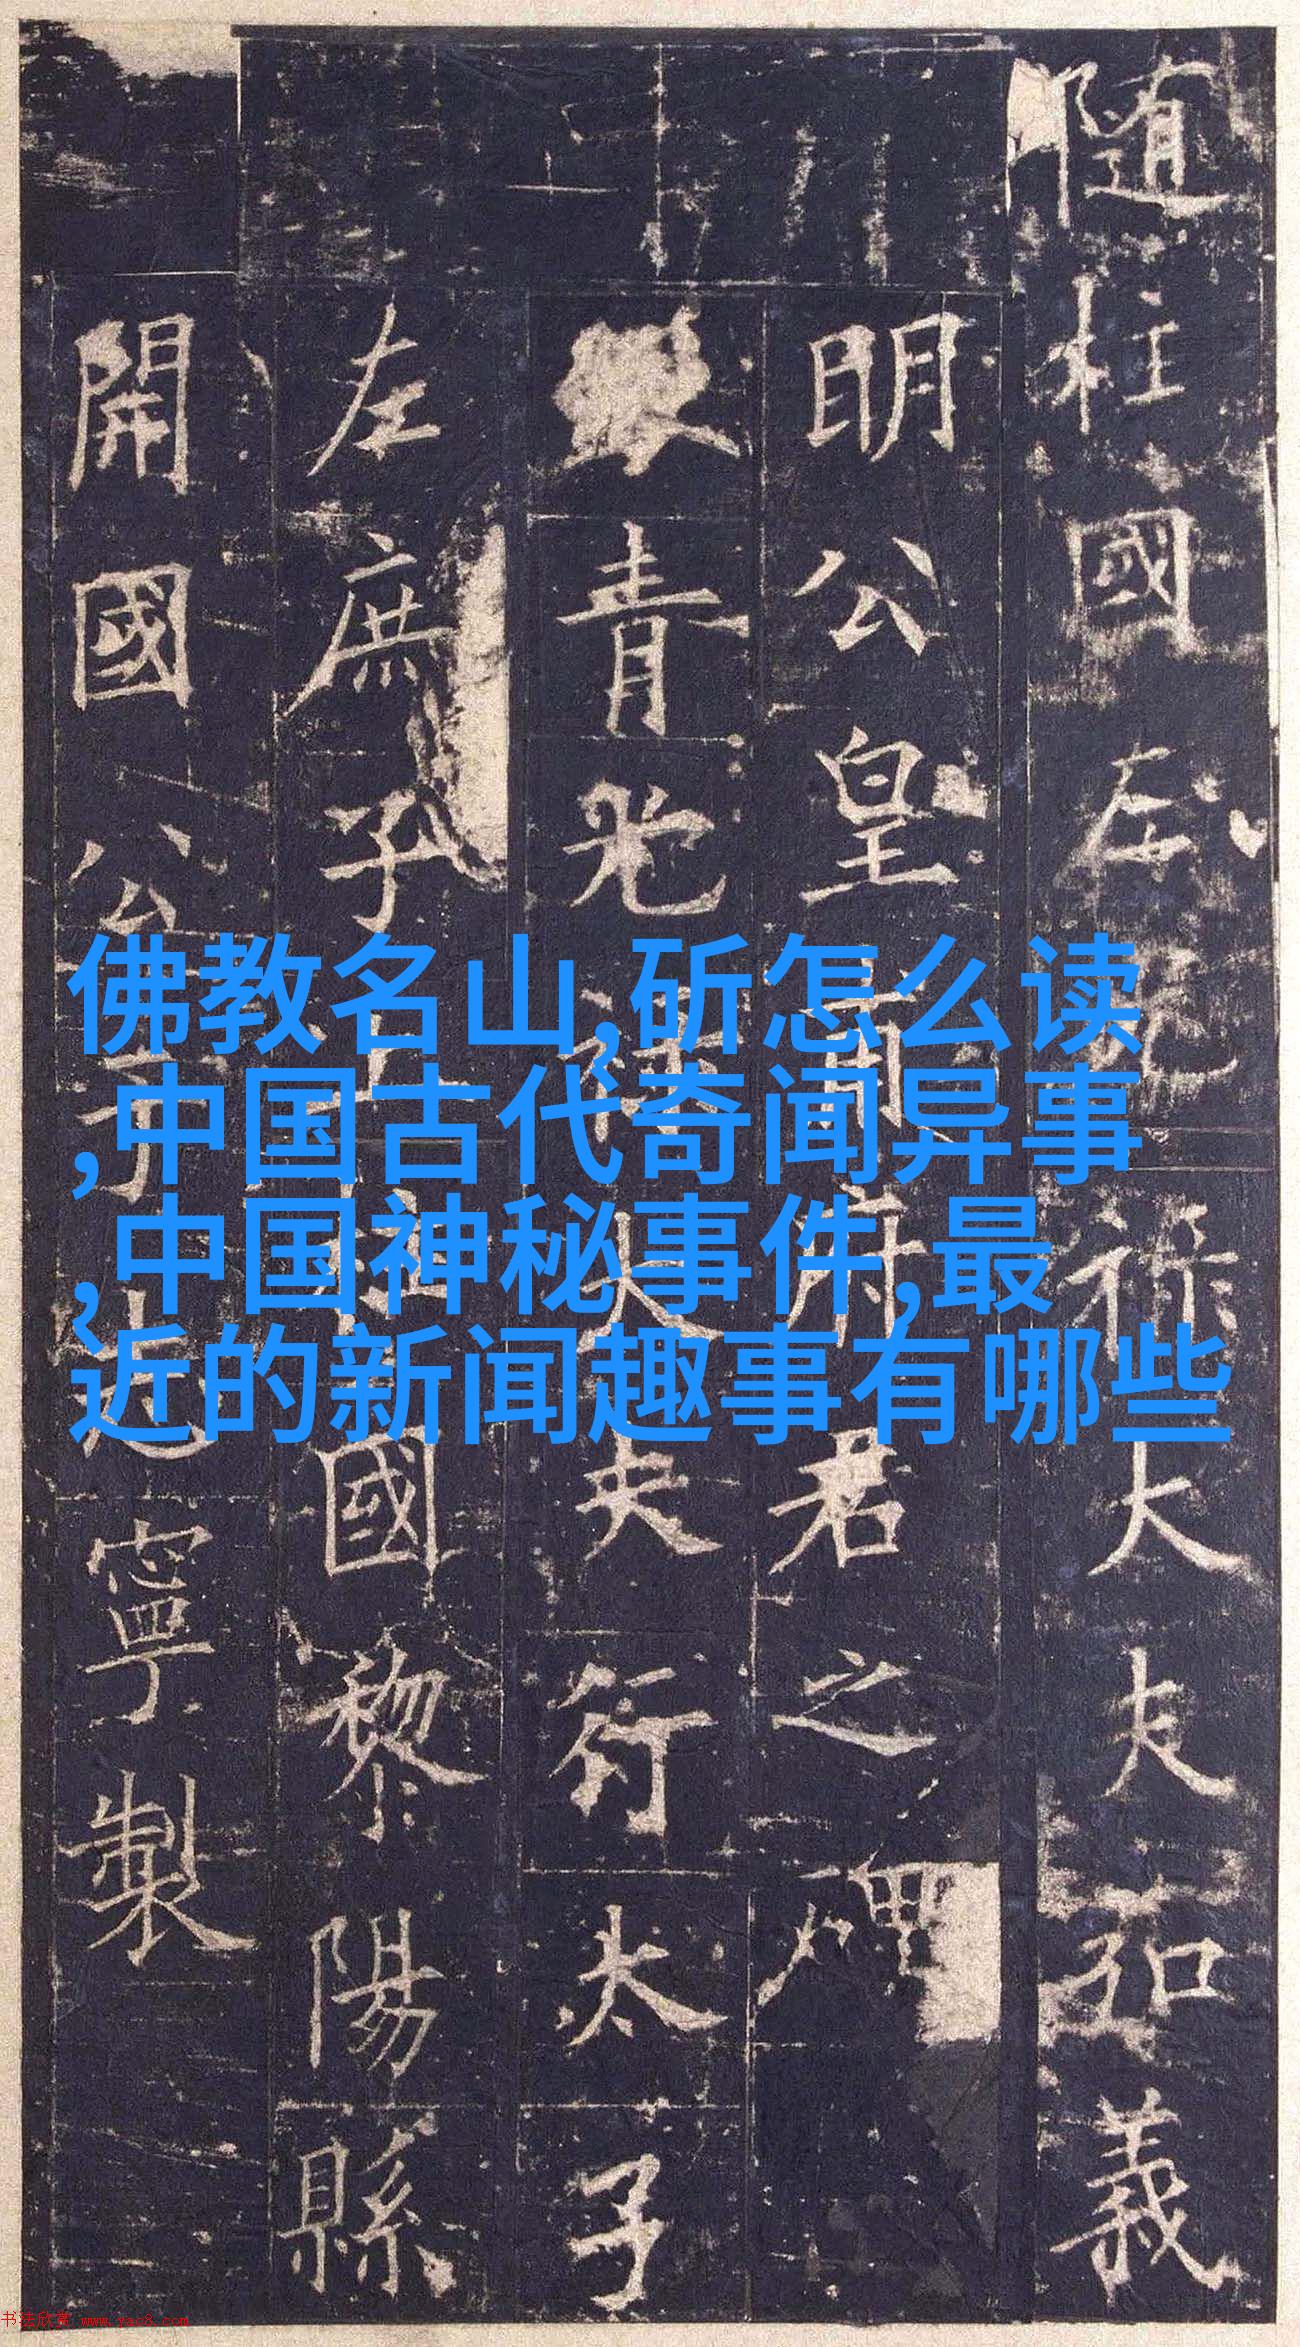 随柱國左光祿大夫弘義
明公皇甫府君之碑
銀青光祿大夫行太子
左庶子上柱國黎陽縣
開國公于志寧製
佛教名山,斫怎么读
,中国古代奇闻异事
,中国神秘事件,最
近的新闻趣事有哪些
书法欣赏 www.yac8.com